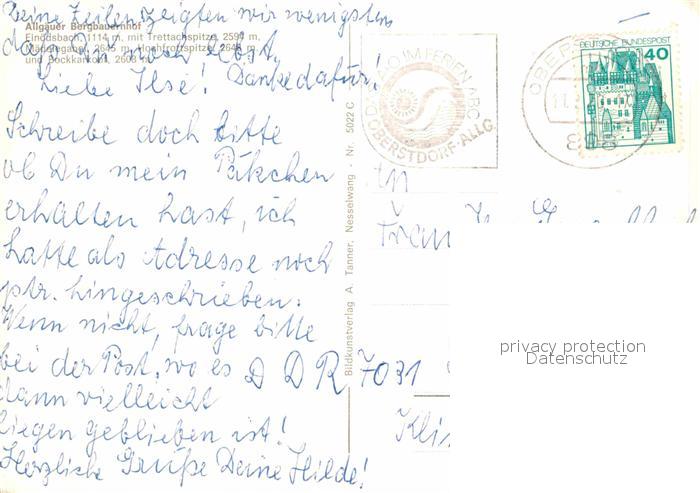 Deine Zeilen zeigten wir wenigsten
daß Du noch lebst,
Liebe Ilse! Danke dafür!
Schreibe doch bitte
ob Du mein Päkchen
erhalten hast, ich
hatte als Adresse noch
ptr. hingeschrieben.
Wenn nicht, frage bitte
bei der Post, wo es
dann vielleicht
liegen geblieben ist!
Herzliche Grüße Deine Hilde!
Allgäuer Bergbauernhof
Einödsbach, 1114 m, mit Trettachspitze, 2594 m,
Mädelegabel, 2645 m, Hochfrottspitze, 2648 m,
und Bockkarkopf, 2608 m
Bildkunstverlag A. Tanner, Nesselwang · Nr. 5022 C
IM FERIEN-ABC
OBERSTDORF-ALLG.
DEUTSCHE BUNDESPOST
40
An
Frau
DDR 7031
privacy protection
Datenschutz